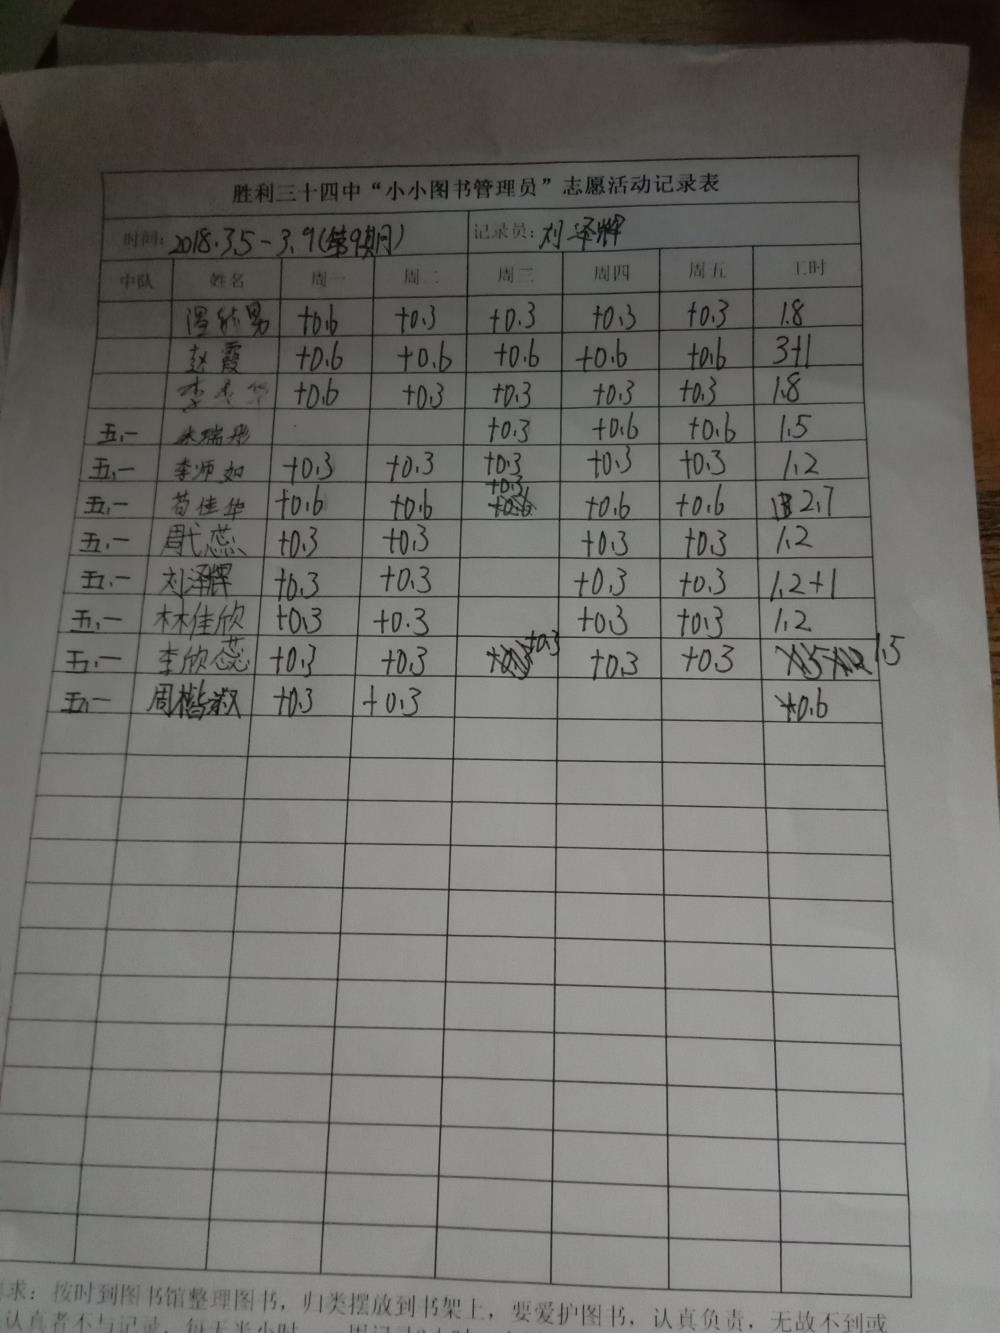 胜利三十四中“小小图书管理员”志愿活动记录表
时间：2018.3.5-3.9(第9期) 记录员：刘泽辉
中队 姓名 周一 周二 周三 周四 周五 工时
+0.6 +0.3 +0.3 +0.3 +0.3 1.8
赵霞 +0.6 +0.6 +0.6 +0.6 +0.6 3+1
李 +0.6 +0.3 +0.3 +0.3 +0.3 1.8
五.一 朱瑞彤 +0.3 +0.6 +0.6 1.5
五.一 李师如 +0.3 +0.3 +0.3 +0.3 +0.3 1.2
五.一 苟佳华 +0.6 +0.6 +0.3 +0.6 +0.6 2.7
五.一 周弋蕊 +0.3 +0.3 +0.3 +0.3 1.2
五.一 刘泽辉 +0.3 +0.3 +0.3 +0.3 1.2+1
五.一 林佳欣 +0.3 +0.3 +0.3 +0.3 1.2
五.一 李欣蕊 +0.3 +0.3 +0.3 +0.3 +0.3 1.5
五.一 周楷淑 +0.3 +0.3 +0.6
求：按时到图书馆整理图书，归类摆放到书架上，要爱护图书，认真负责，无故不到或
认真者不与记录，每天半小时